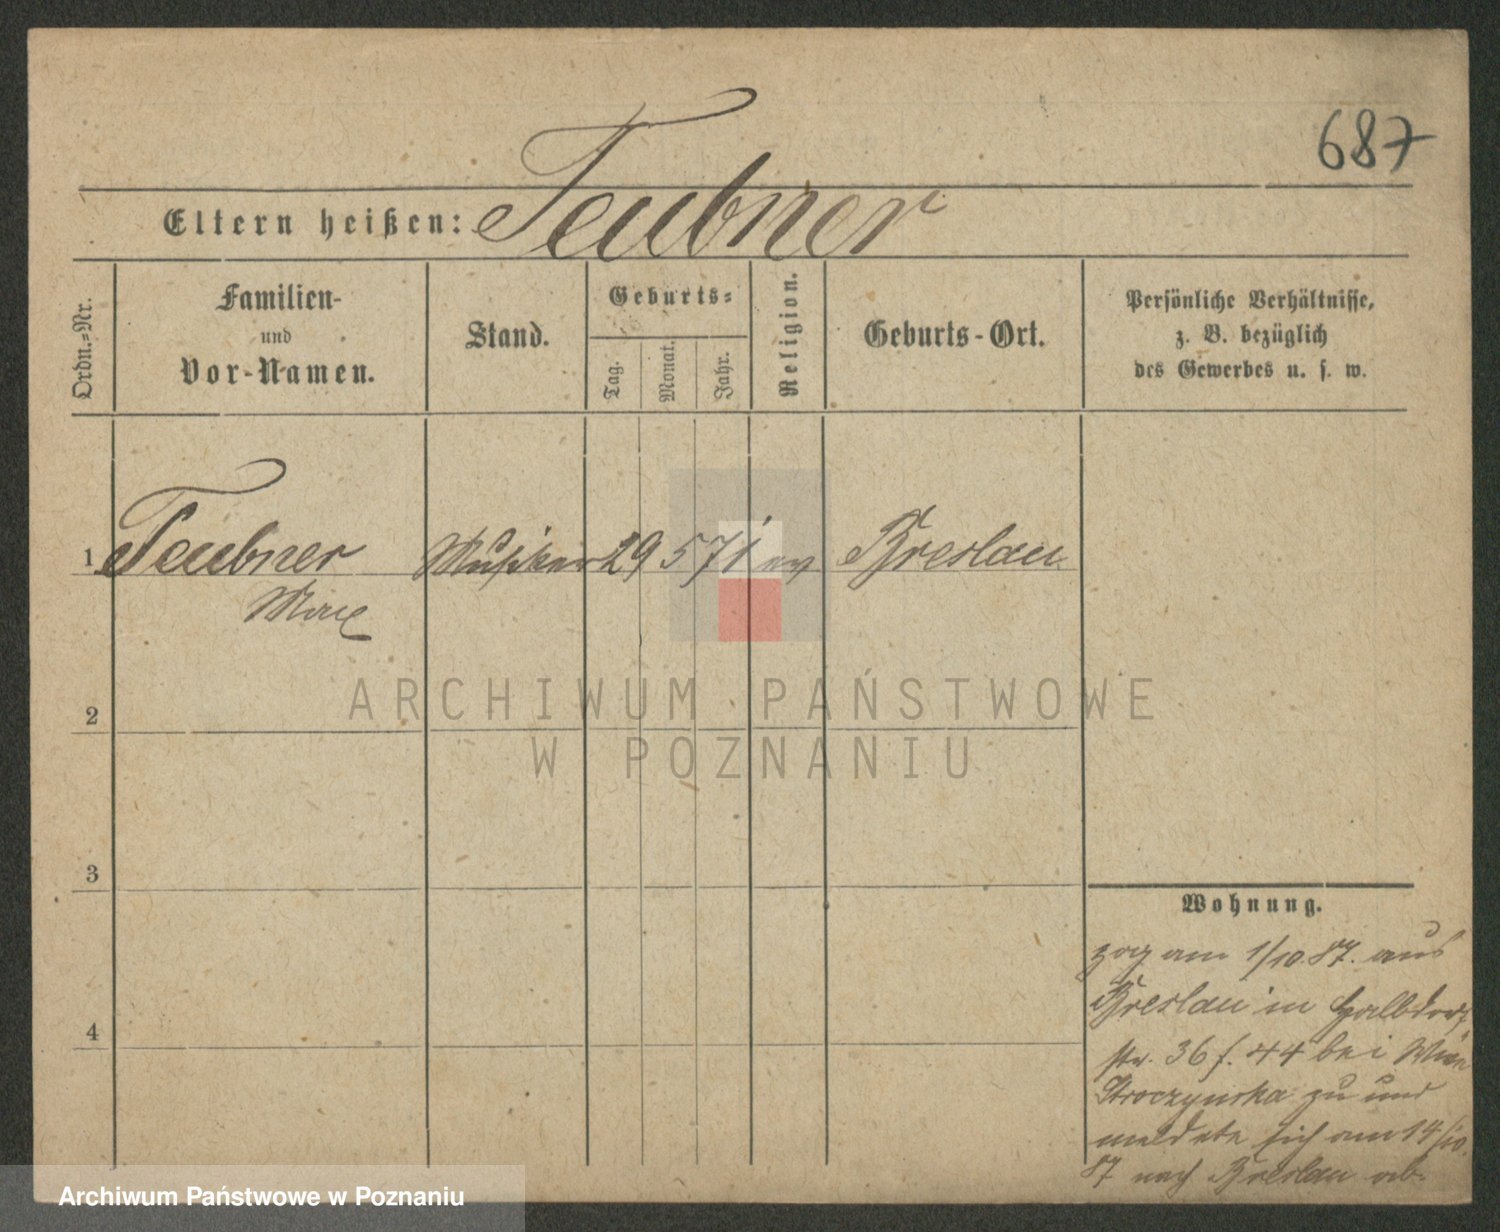 687
Eltern heißen: Teubner
Ordn.-Nr.
Familien-
und
Vor-Namen.
Stand.
Geburts-
Tag.
Monat.
Jahr.
Religion.
Geburts-Ort.
Persönliche Verhältnisse,
z. B. bezüglich
des Gewerbes u. s. w.
1 Teubner Musiker 29 5 71 ev Breslau
Max
ARCHIWUM PAŃSTWOWE
W POZNANIU
2
3
4
Wohnung.
zog am 1/10.87. aus
Breslau in Halbdorf
str. 36 f. 44 bei
Stroczynska zu und
meldete sich am 14/10.
87 nach Breslau ab.
Archiwum Państwowe w Poznaniu